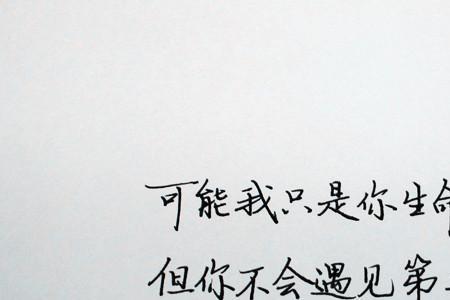 可能我只是你生命
但你不会遇见第